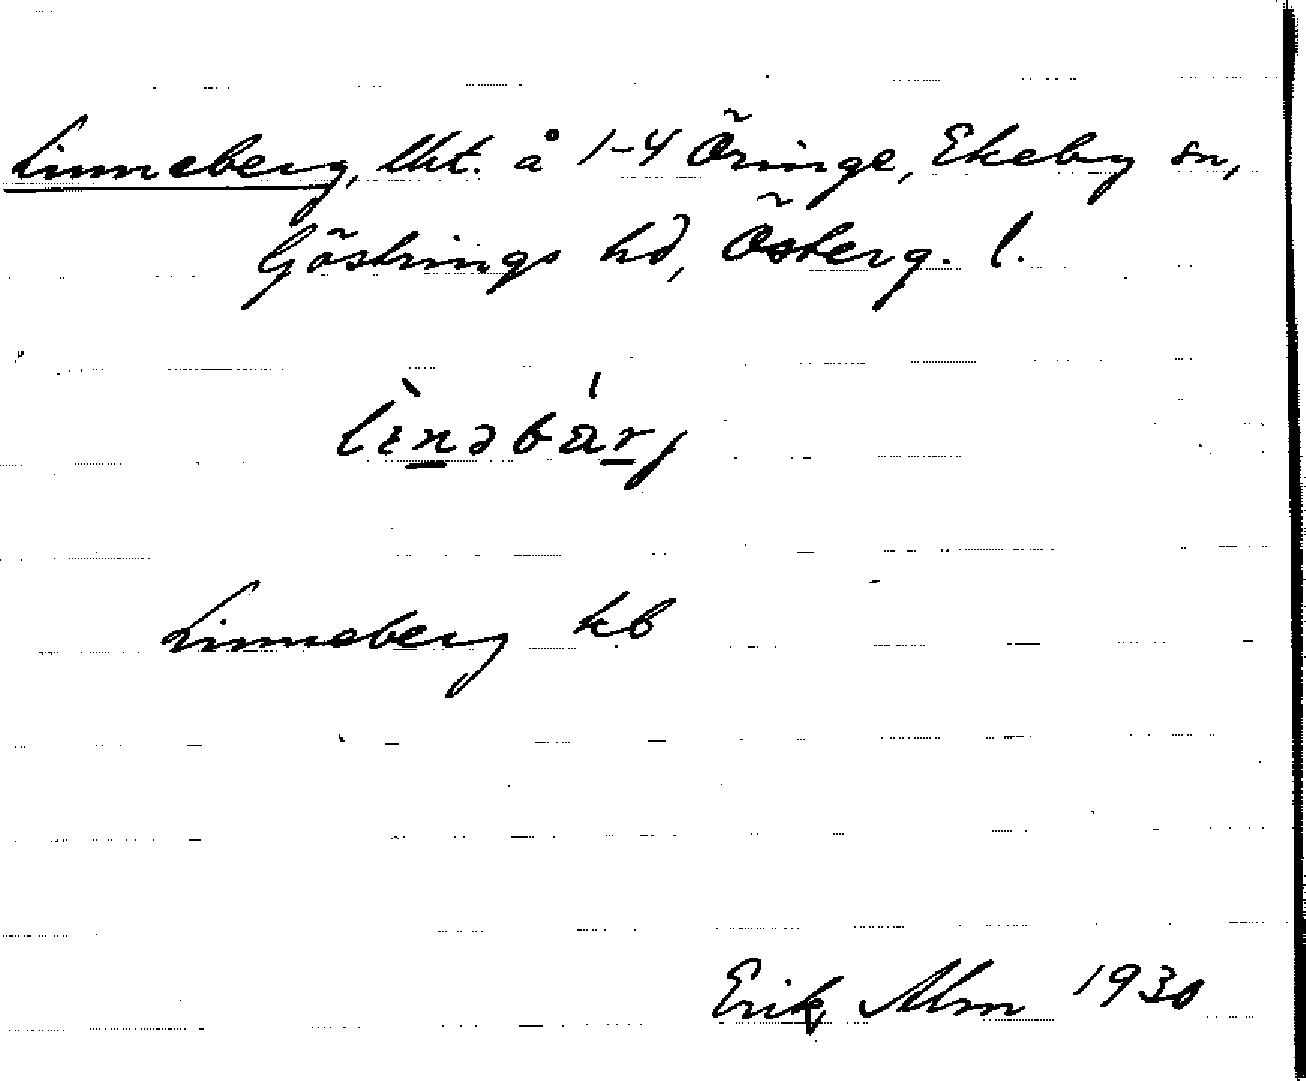 Linneberg, lht. å 1-4 Öringe, Ekeby sn,
Göstrings hd, Österg. l.
lìnəbárj
Linneberg kb
Erik Alm 1930